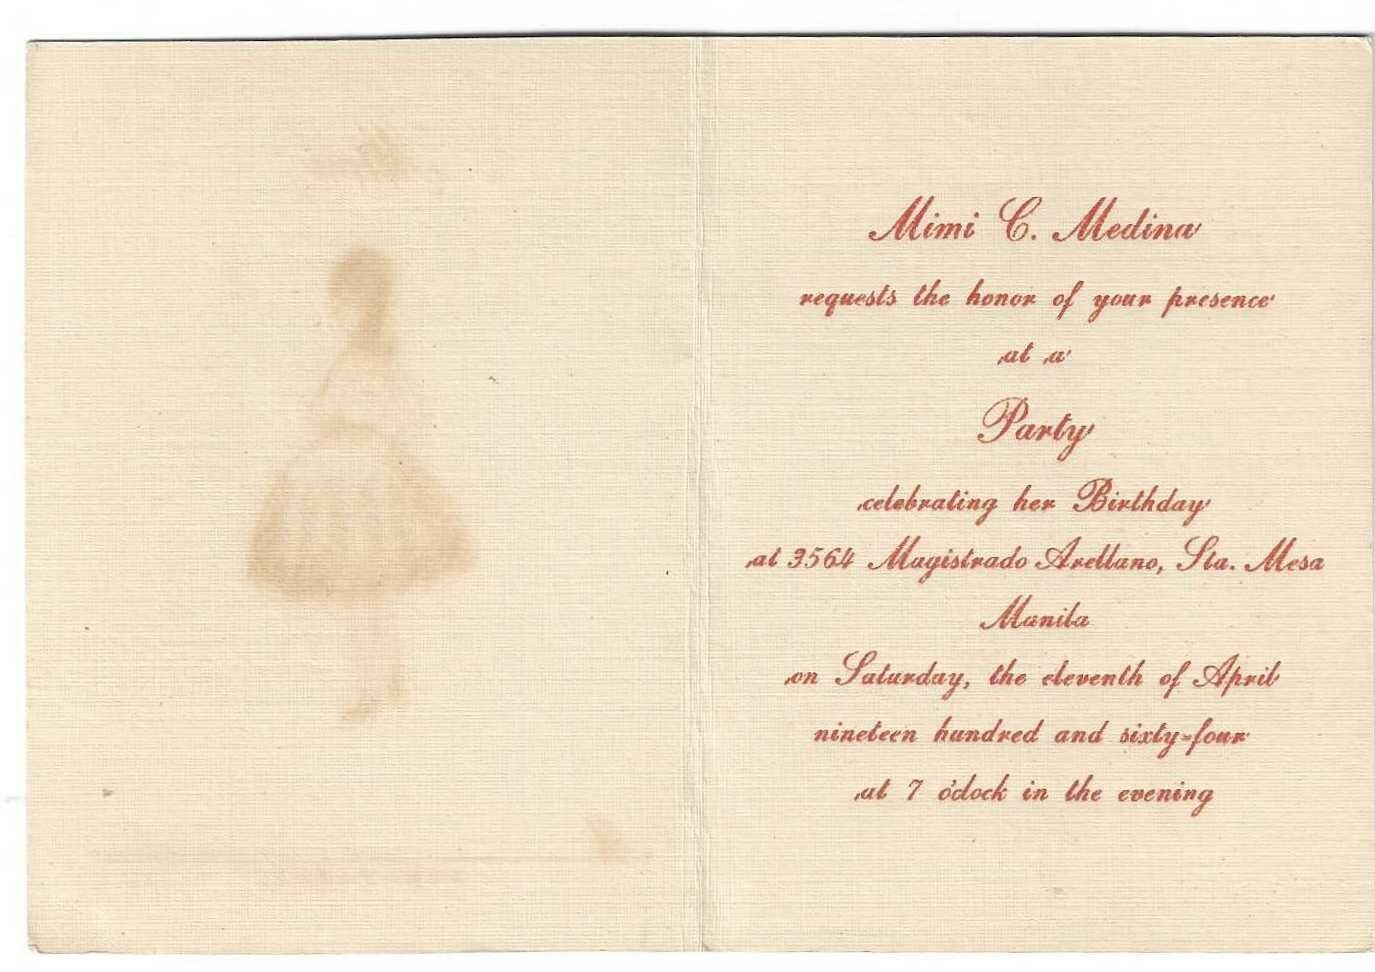 Mimi C. Medina
requests the honor of your presence
at a
Party
celebrating her Birthday
at 3564 Magistrado Arellano, Sta. Mesa
Manila
on Saturday, the eleventh of April
nineteen hundred and sixty-four
at 7 o'clock in the evening